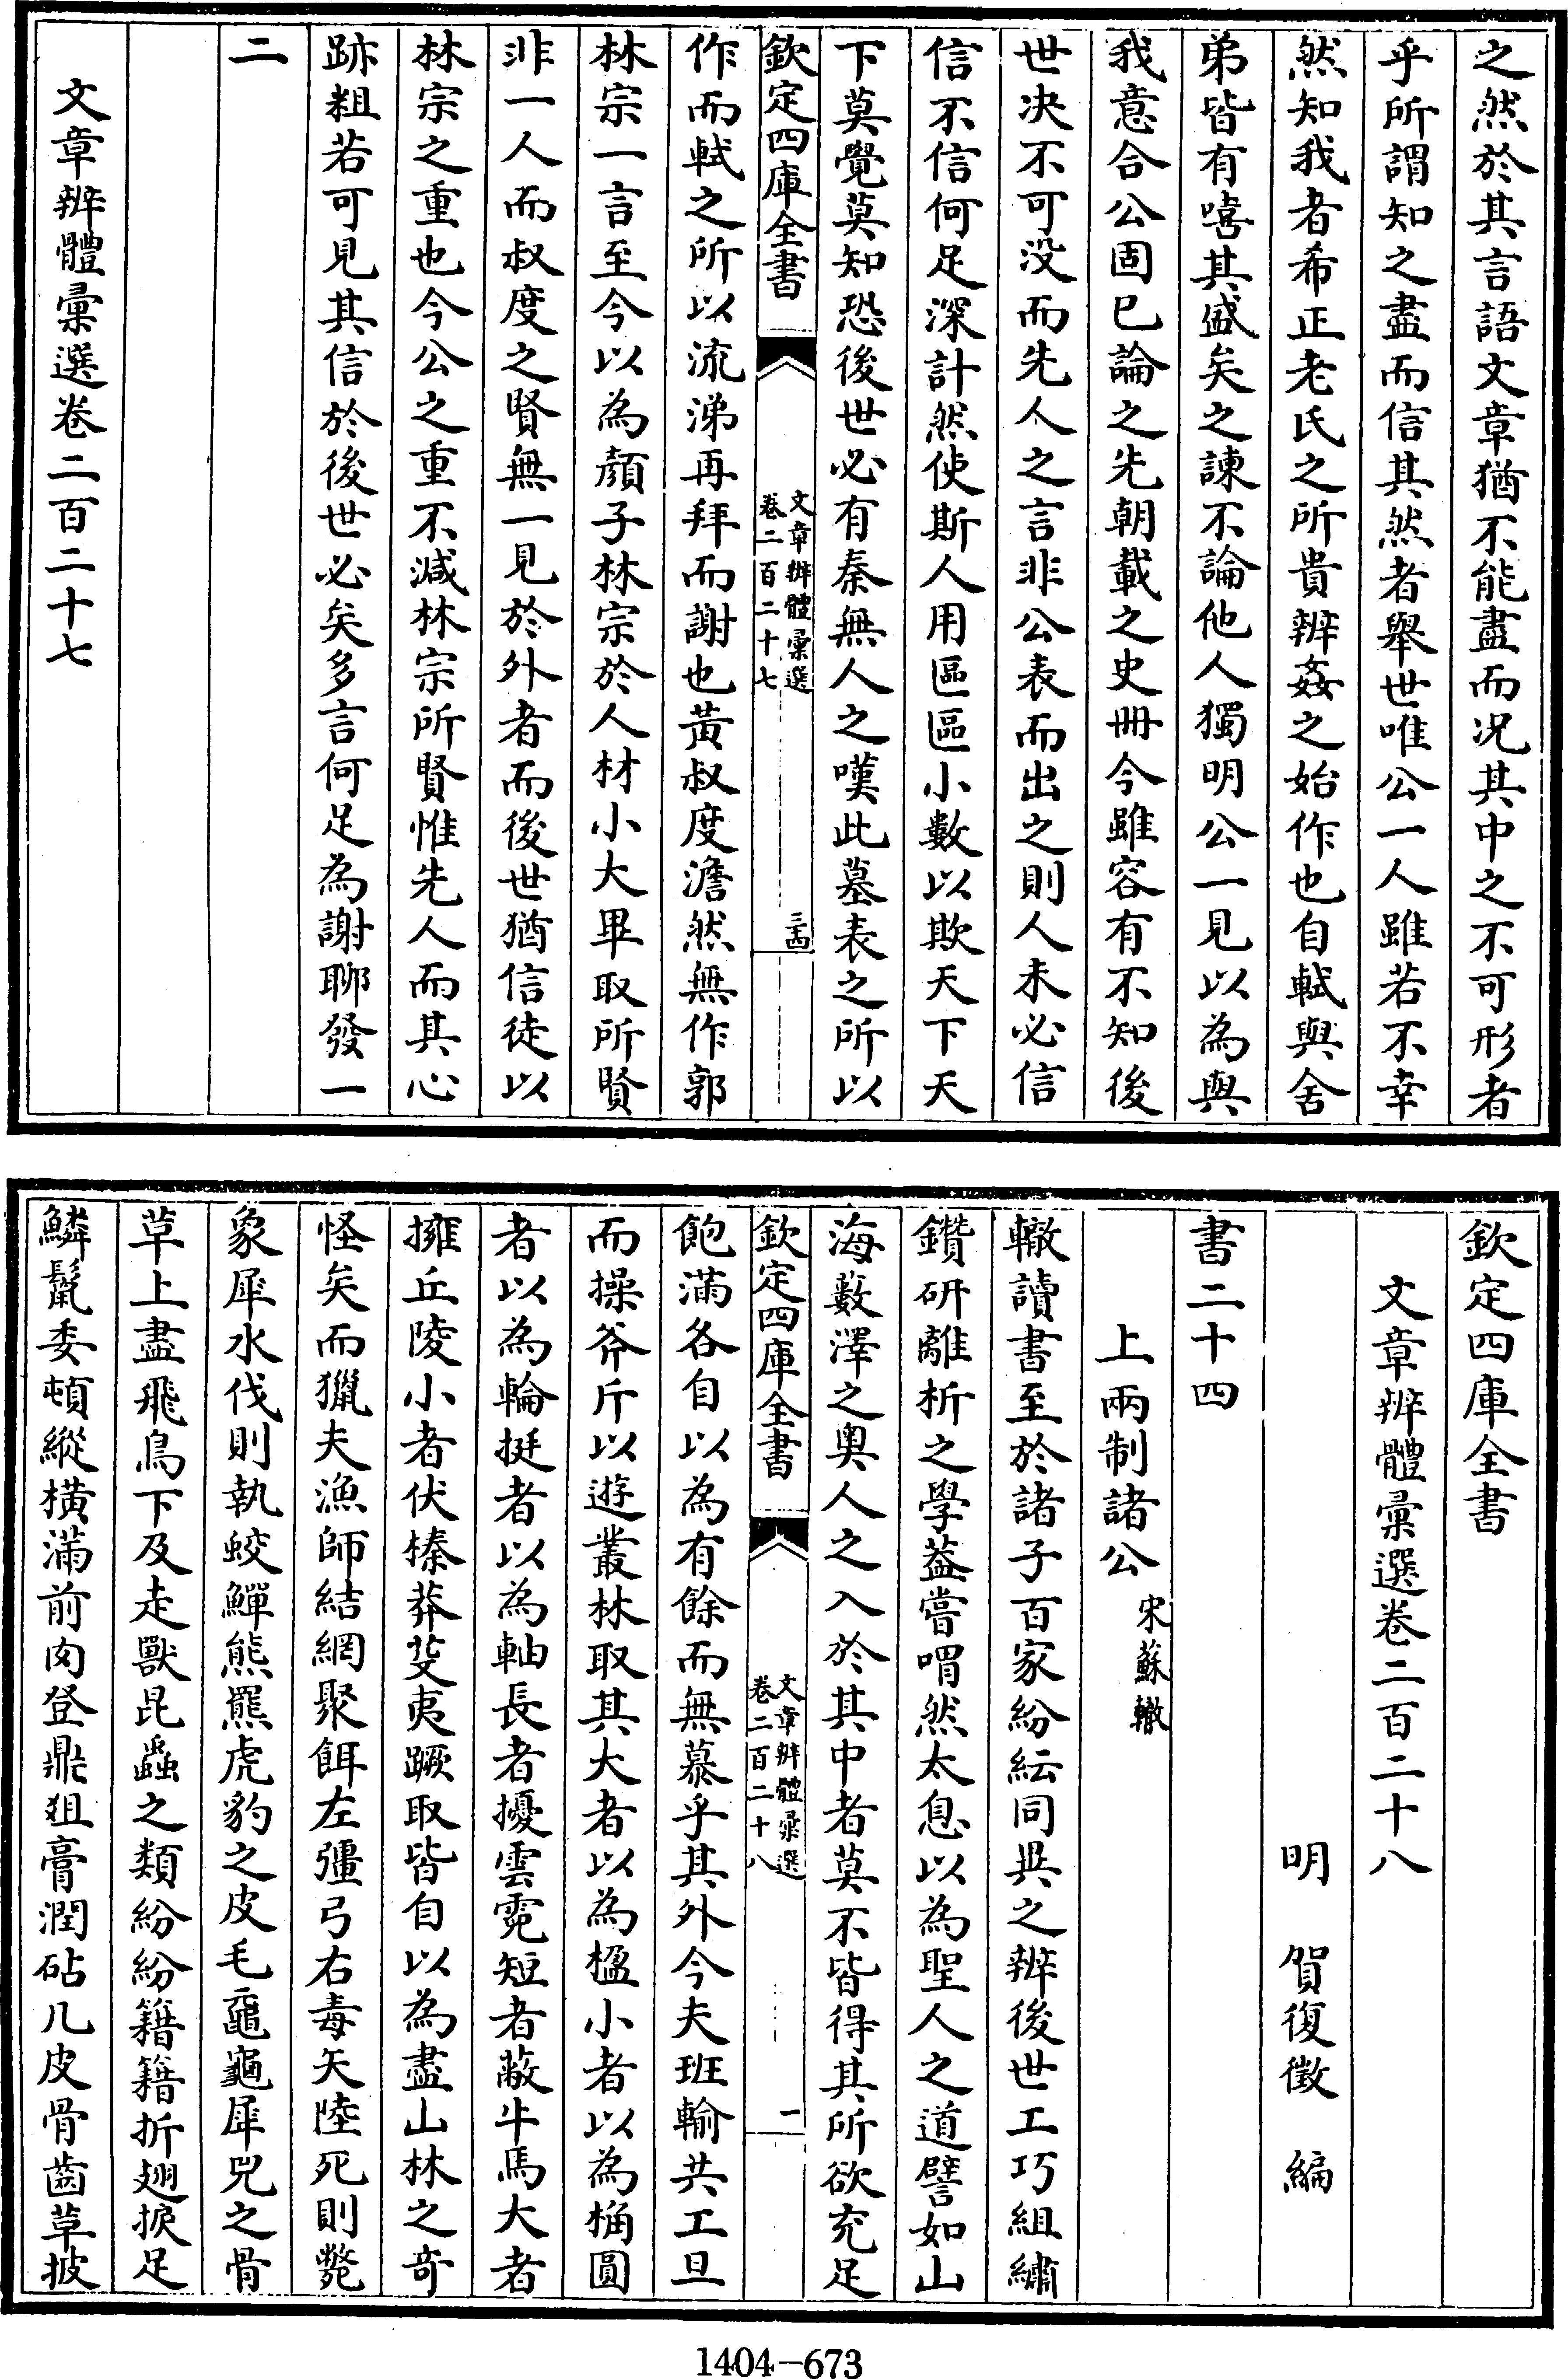 之然於其言語文章猶不能盡而况其中之不可形者
乎所謂知之盡而信其然者舉世唯公一人雖若不幸
然知我者希正老氏之所貴辨姦之始作也自軾與舍
弟皆有嘻其盛矣之諫不論他人獨明公一見以為與
我意合公固已論之先朝載之史冊今雖容有不知後
世决不可没而先人之言非公表而出之則人未必信
信不信何足深計然使斯人用區區小數以欺天下天
下莫覺莫知恐後世必有秦無人之嘆此墓表之所以
欽定四庫全書
文章辨體彙選
卷二百二十七
三西
作而軾之所以流涕再拜而謝也黃叔度澹然無作郭
林宗一言至今以為顏子林宗於人材小大畢取所賢
非一人而叔度之賢無一見於外者而後世猶信徒以
林宗之重也今公之重不減林宗所賢惟先人而其心
跡粗若可見其信於後世必矣多言何足為謝聊發一
二
文章辨體彙選卷二百二十七
欽定四庫全書
文章辨體彙選卷二百二十八
明 賀復徵 編
書二十四
上兩制諸公 宋蘇轍
轍讀書至於諸子百家紛紜同異之辨後世工巧組繡
鑽研離析之學葢嘗喟然太息以為聖人之道譬如山
海藪澤之奧人之入於其中者莫不皆得其所欲充足
欽定四庫全書
文章辨體彙選
卷二百二十八
一
飽滿各自以為有餘而無慕乎其外今夫班輸共工旦
而操斧斤以遊叢林取其大者以為楹小者以為桷圓
者以為輪挺者以為軸長者擾雲霓短者蔽牛馬大者
擁丘陵小者伏榛莽芟夷蹶取皆自以為盡山林之奇
怪矣而獵夫漁師結網聚餌左彊弓右毒矢陸死則斃
象犀水伐則執蛟鱓熊羆虎豹之皮毛黿龜犀兕之骨
草上盡飛鳥下及走獸昆蟲之類紛紛籍籍折翅捩足
鱗鬣委頓縱橫滿前肉登鼎俎膏潤砧几皮骨齒草披
1404-673